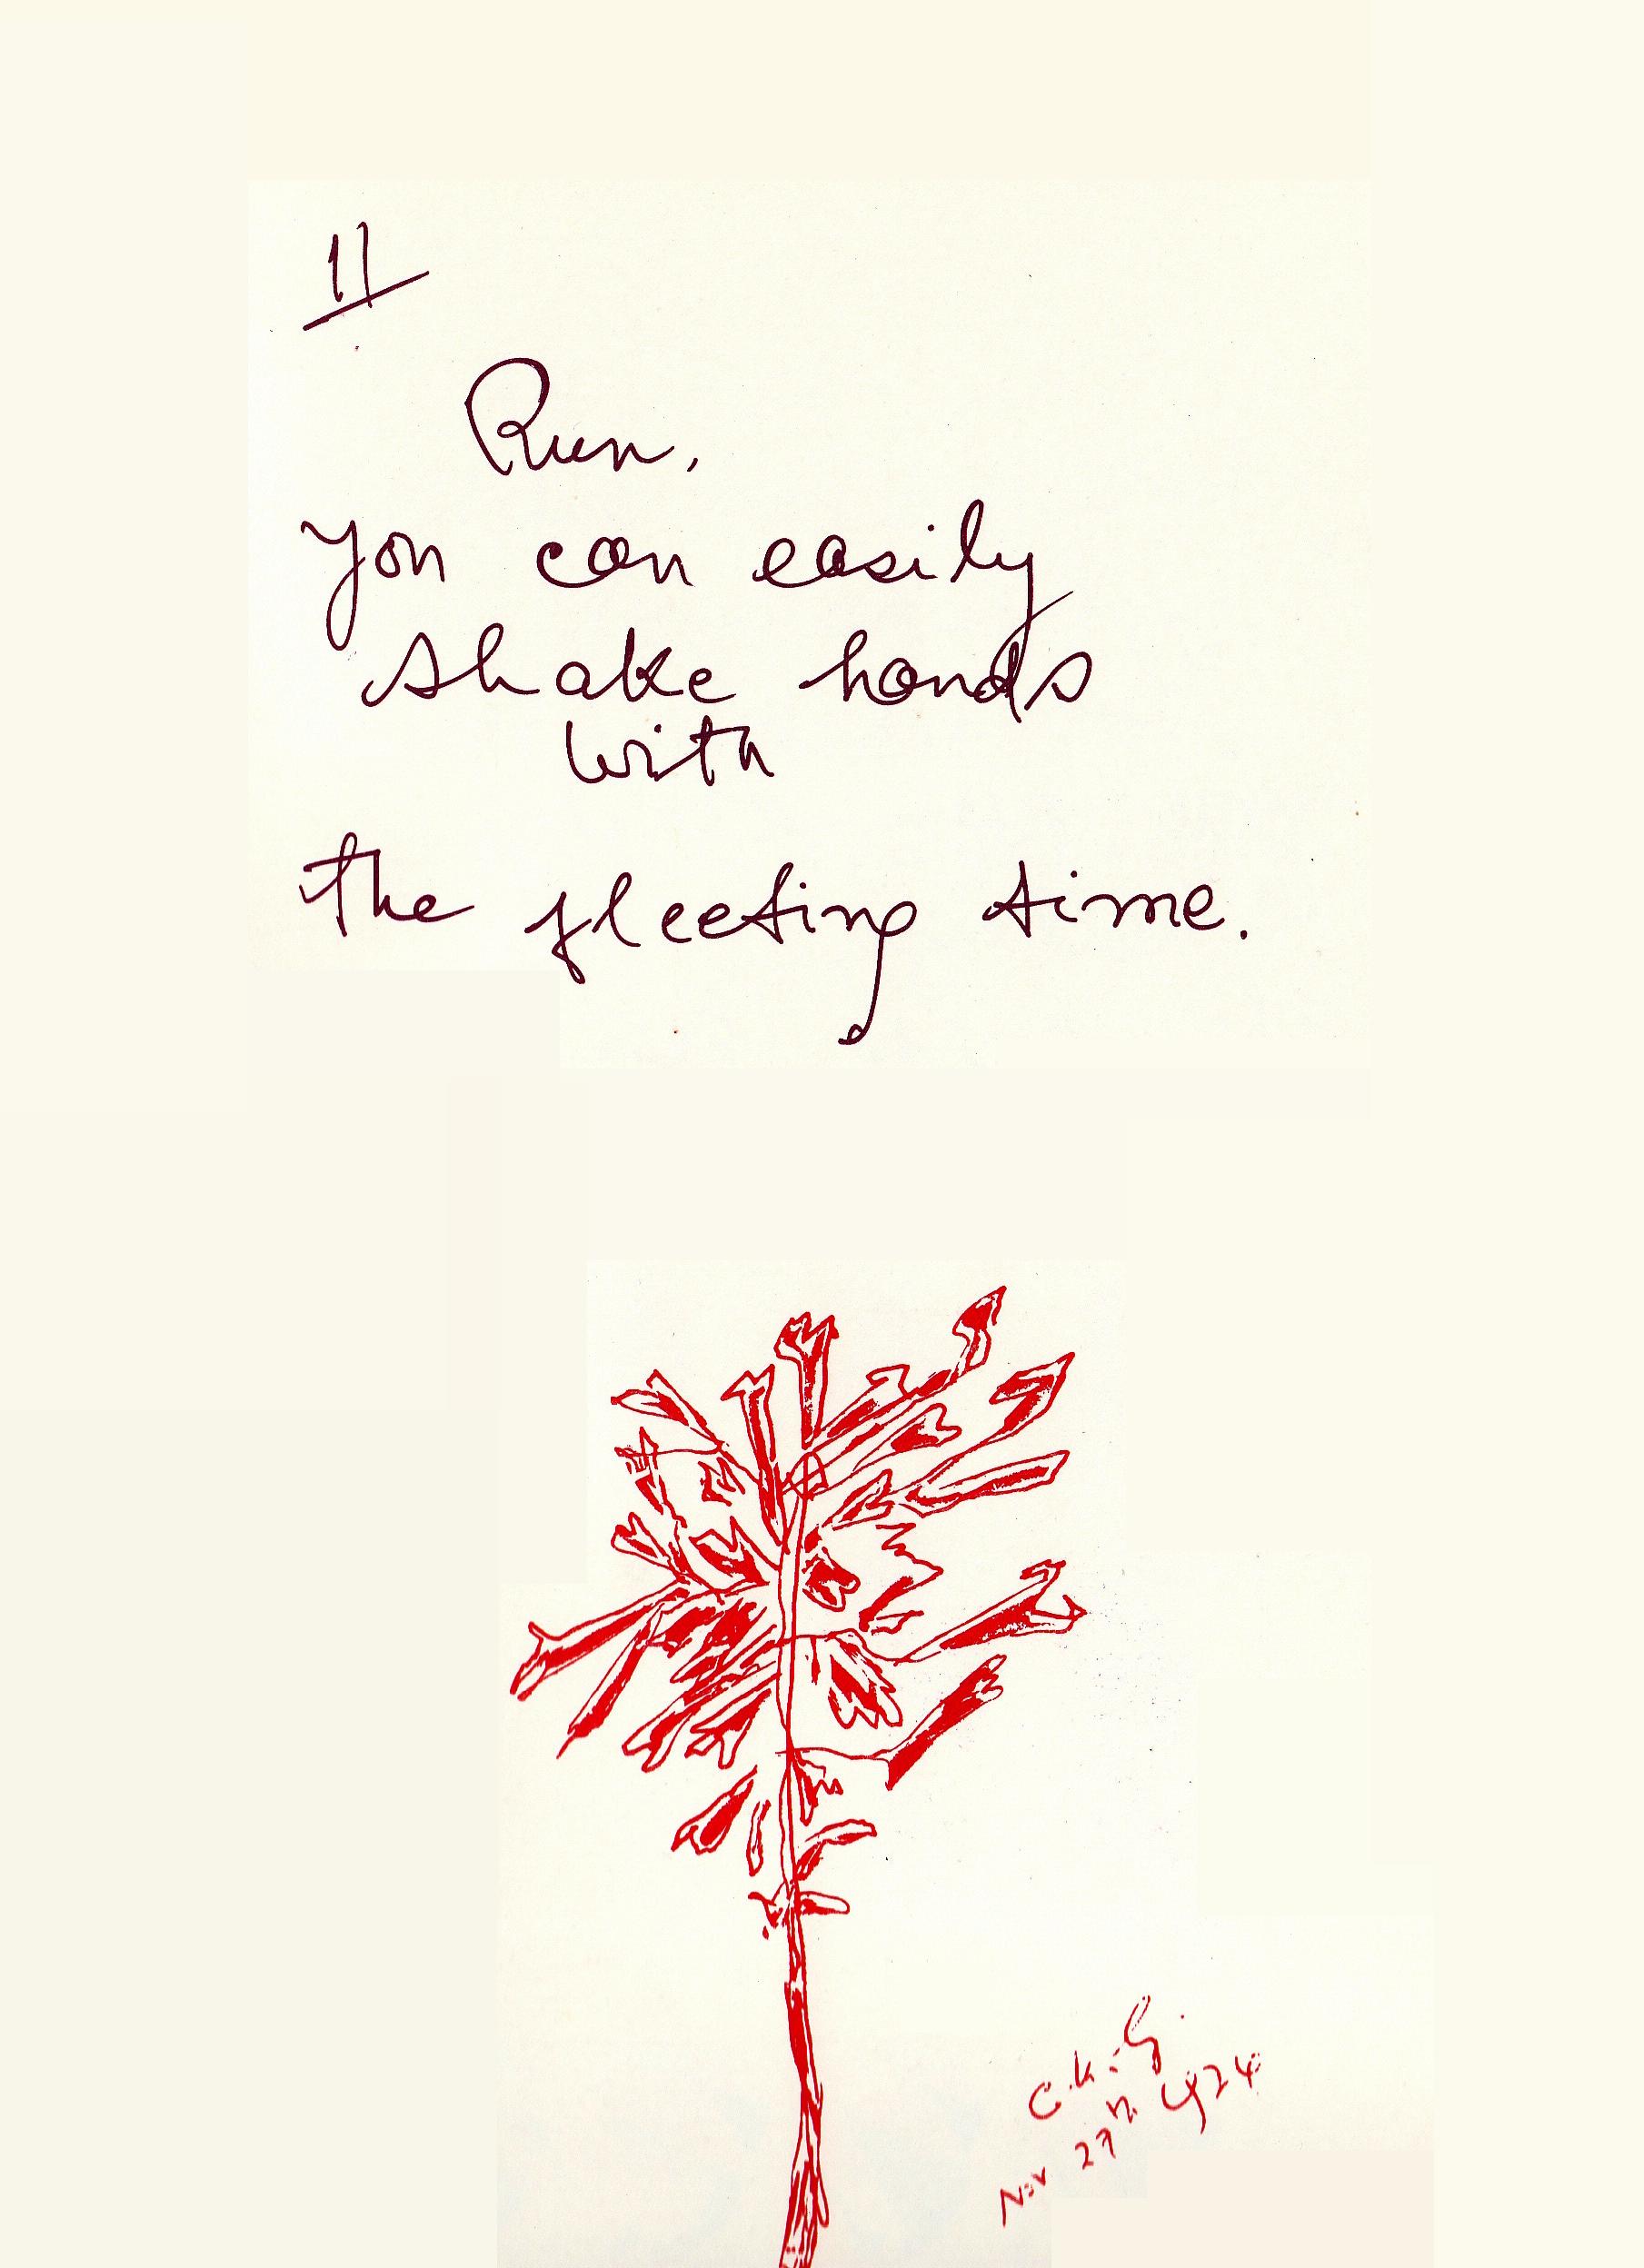 11
Run,
you can easily
shake hands
with
the fleeting time.
C.K.G.
Nov 27th